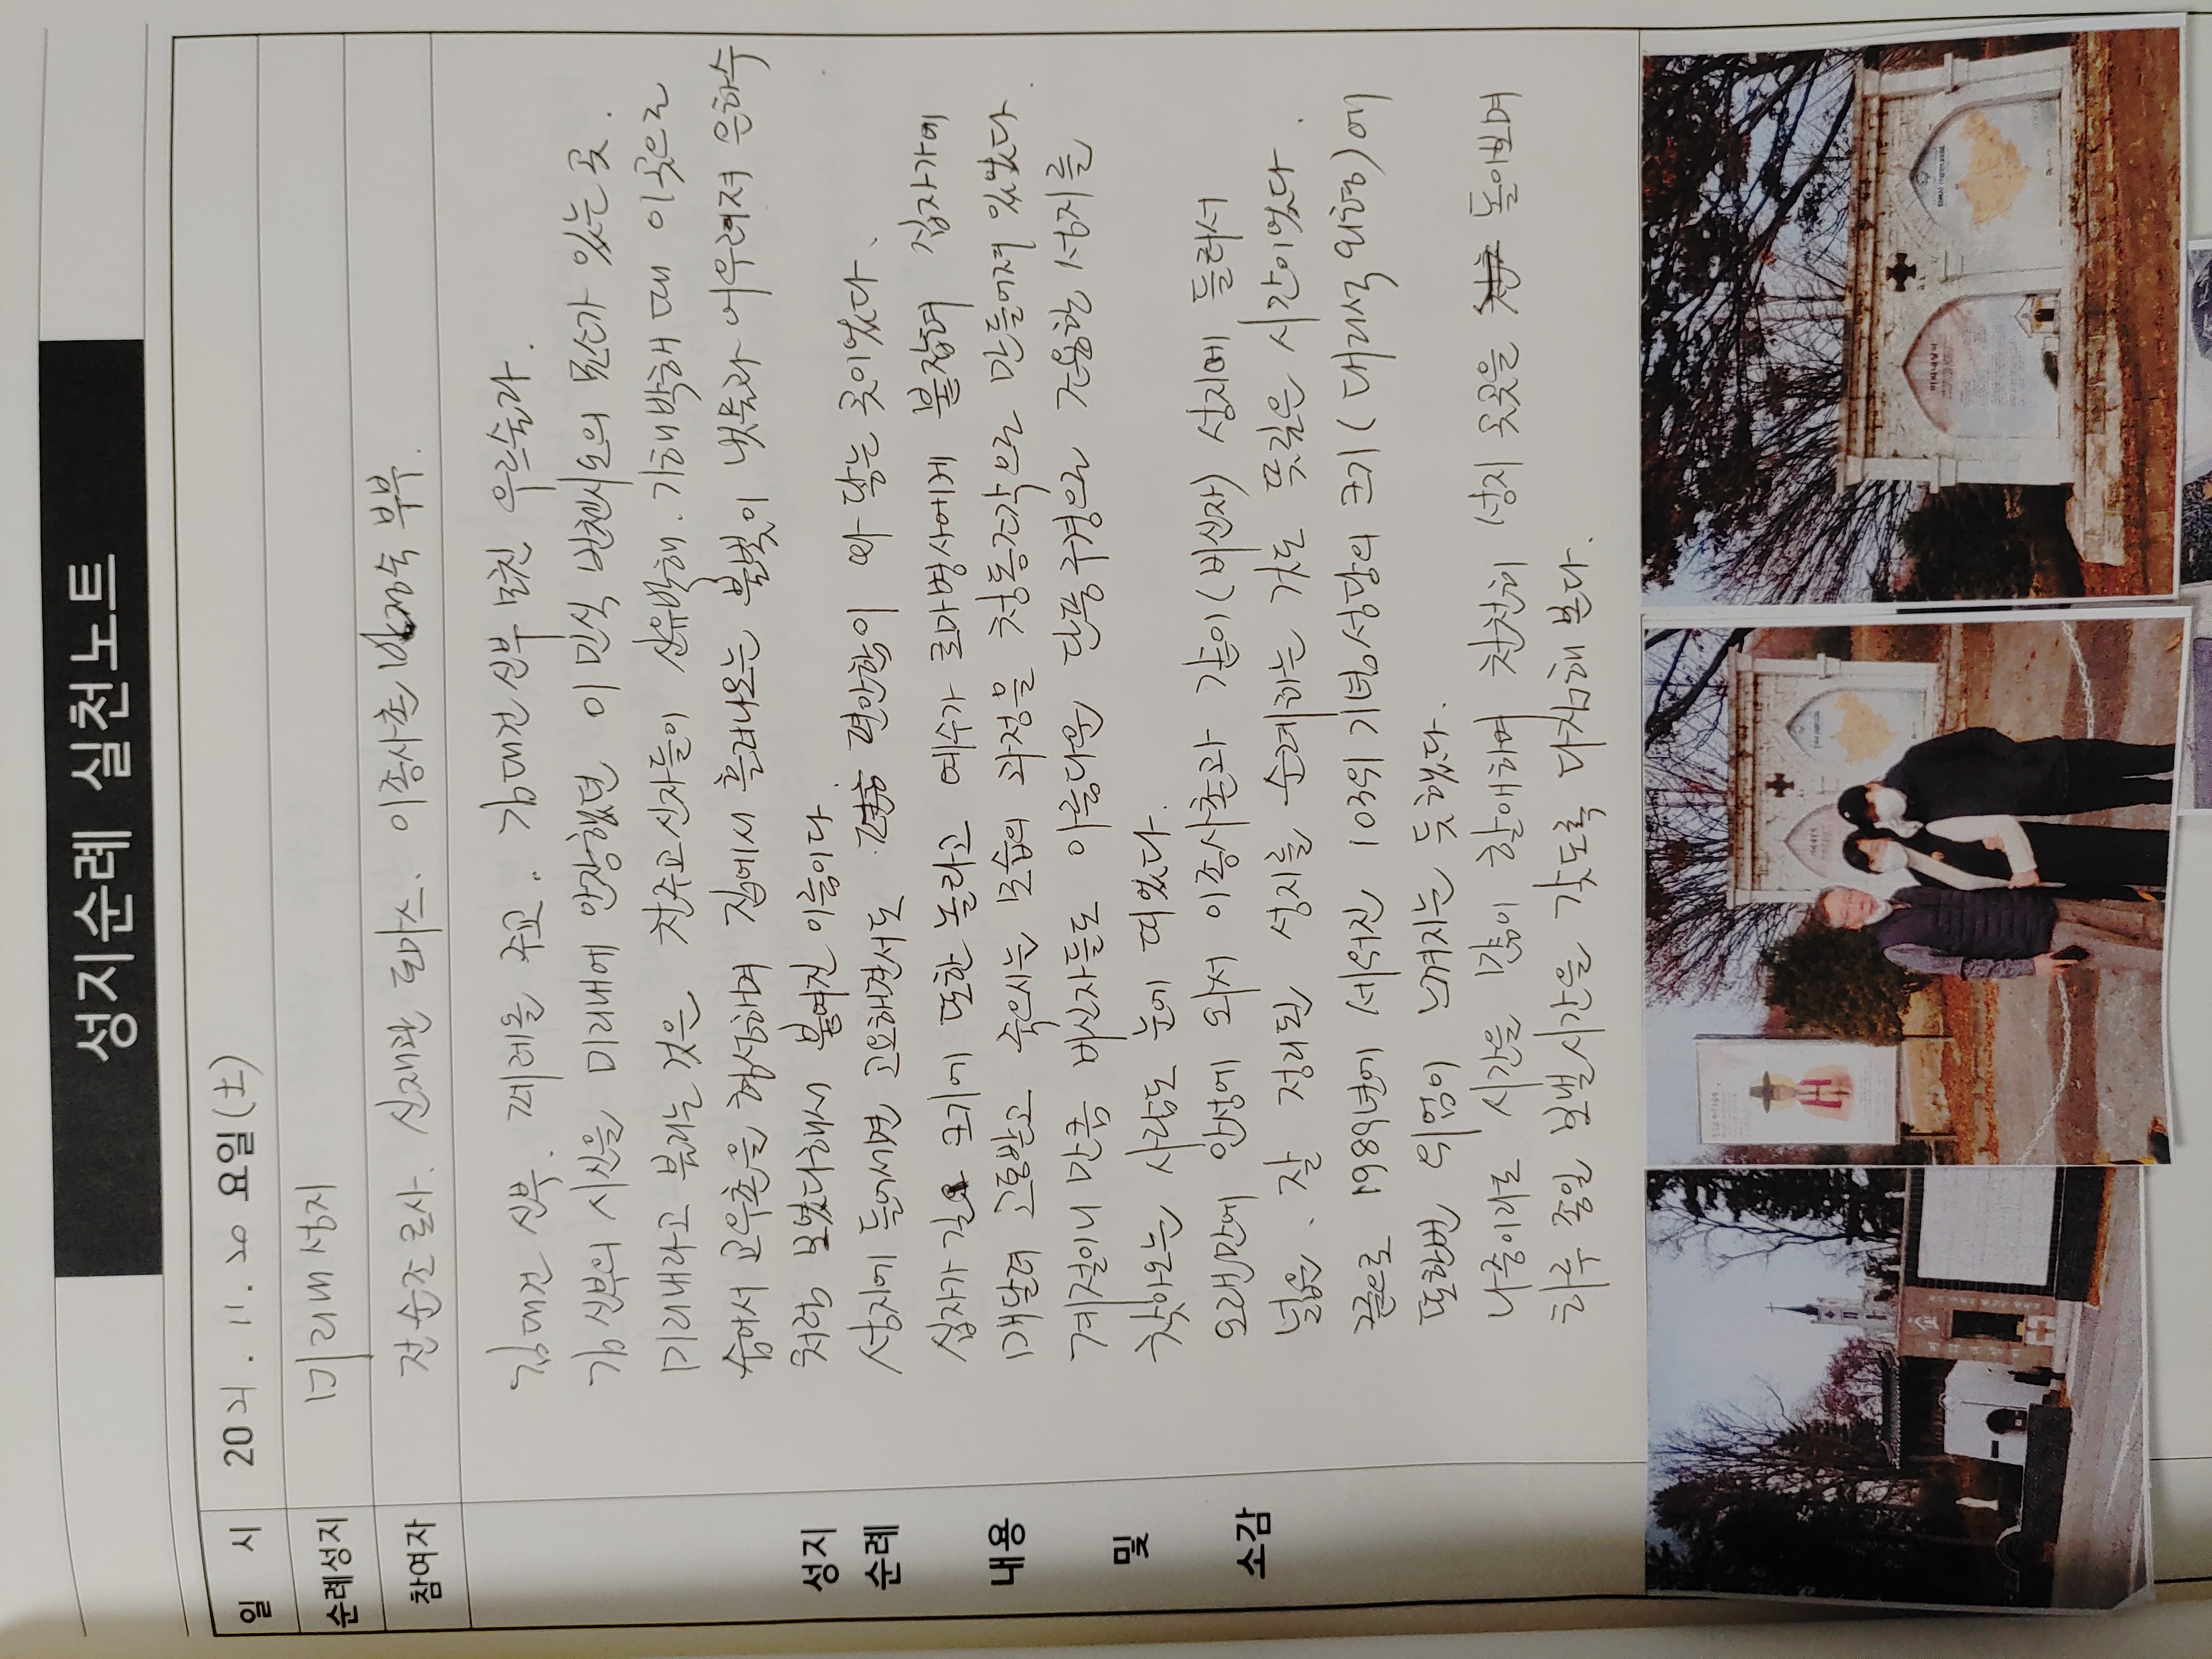 성지순례 실천노트
일 시 2021. 11. 20 요일(土)
순례성지 미리내성지
참여자 전순조 로사. 신재관 토마스. 이종사촌 부부.
성지 순례 내용 및 소감
김대건 신부. 페레올 주교. 김대건 신부 모친 우르술라.
김신부의 시신을 미리내에 안장했던 이민식 빈첸시오의 묘소가 있는 곳.
미리내라고 불리는 것은 천주교신자들이 신유박해. 기해박해 때 이곳으로
숨어서 교우촌을 형성하며 집에서 흘러나오는 불빛이 냇물과 어우러져 은하수
처럼 보였다해서 붙여진 이름이다.
성지에 들어서면 고요해면서도 편안함이 와 닿는 곳이었다.
십자가 길 크기에 또한 놀라고 예수가 로마병사에게 붙잡혀 십자가에
매달려 고통받고 죽으시는 모습의 과정을 청동조각으로 만들어져 있었다.
계절이니 만큼 비신자들도 아름다운 단풍구경으로 조용한 성지를
찾아오는 사람도 눈에 띄었다.
오랜만에 안성에 와서 이종사촌과 같이(비신자) 성지에 들려서
넓은. 잘 정리된 성지를 순례하는 것도 뜻깊은 시간이었다.
끝으로 1989년에 세워진 103위 기념성당의 크기(대리석 외형)에
또한번 위엄이 느껴지는 듯했다.
나중이라도 시간을 많이 할애하며 천천히 성지 곳곳을 돌아보며
하루 종일 보낼시간을 갖도록 다짐해 본다.